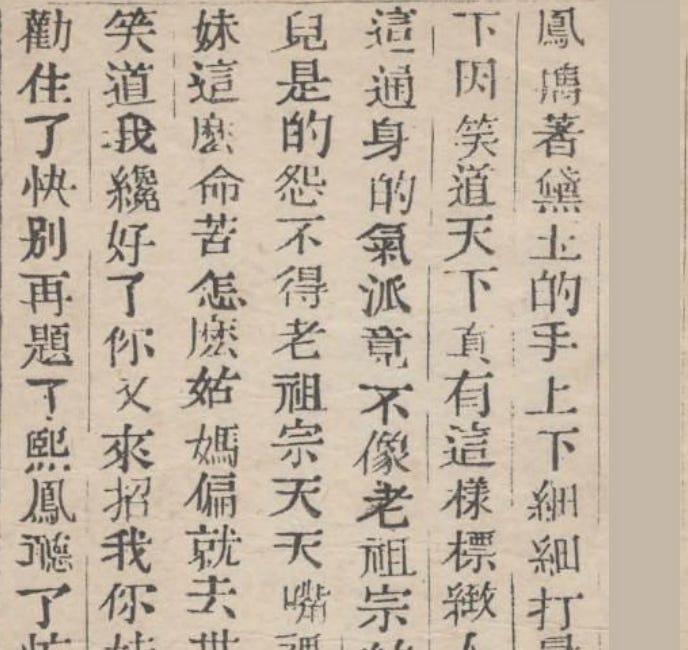 鳳攜著黛玉的手上下細細打量
下因笑道天下真有這樣標緻人
這通身的氣派竟不像老祖宗的
兒是的怨不得老祖宗天天嘴裡
妹這麽命苦怎麽姑媽偏就去世
笑道我纔好了你又來招我你妹
勸住了快別再題了熙鳳聽了忙